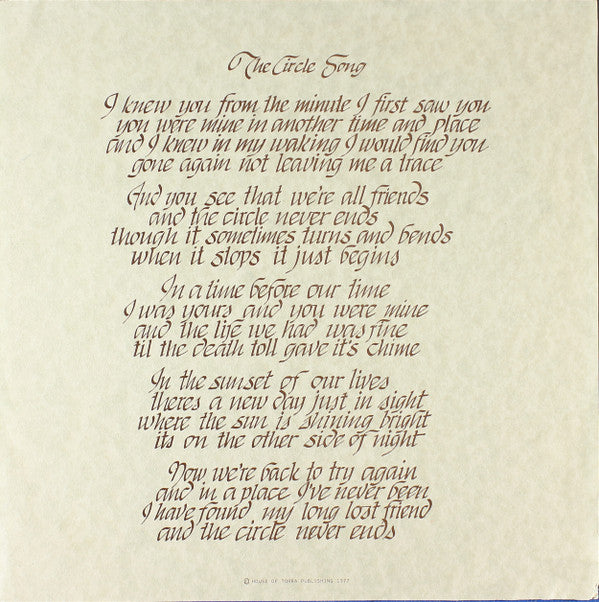 The Circle Song
I knew you from the minute I first saw you
you were mine in another time and place
and I knew in my waking I would find you
gone again not leaving me a trace
And you see that we're all friends
and the circle never ends
though it sometimes turns and bends
when it stops it just begins
In a time before our time
I was yours and you were mine
and the life we had was fine
til the death toll gave it's chime
In the sunset of our lives
theres a new day just in sight
where the sun is shining bright
its on the other side of night
Now we're back to try again
and in a place I've never been
I have found my long lost friend
and the circle never ends
© HOUSE OF PUBLISHING 1977